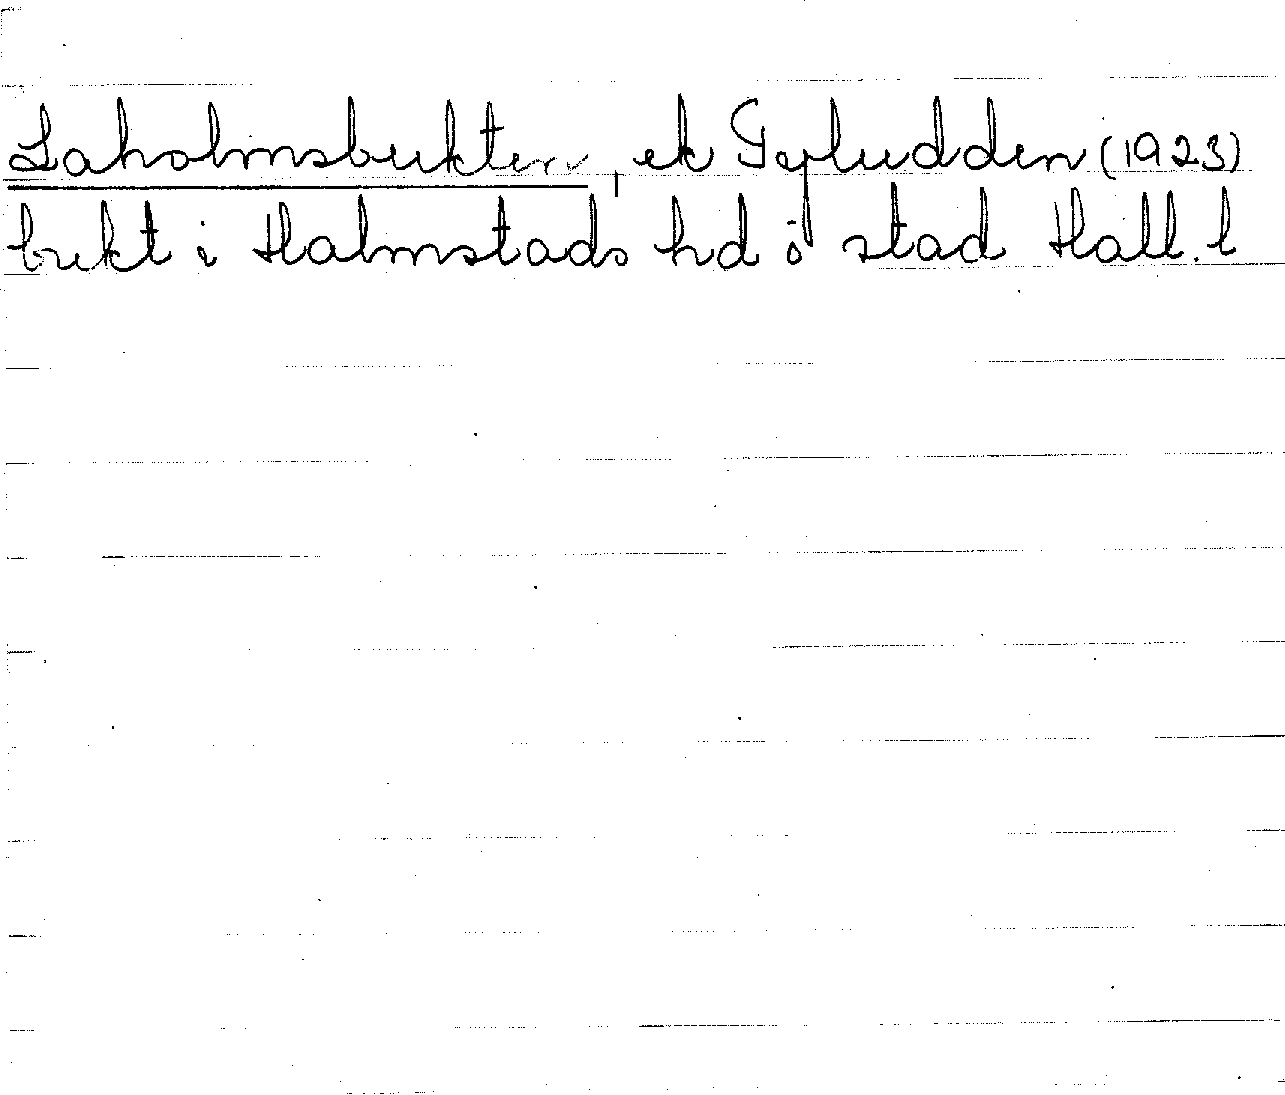 Laholmsbukten, ek Tyludden (1923)
bukt i Halmstads hd o stad Hall. l